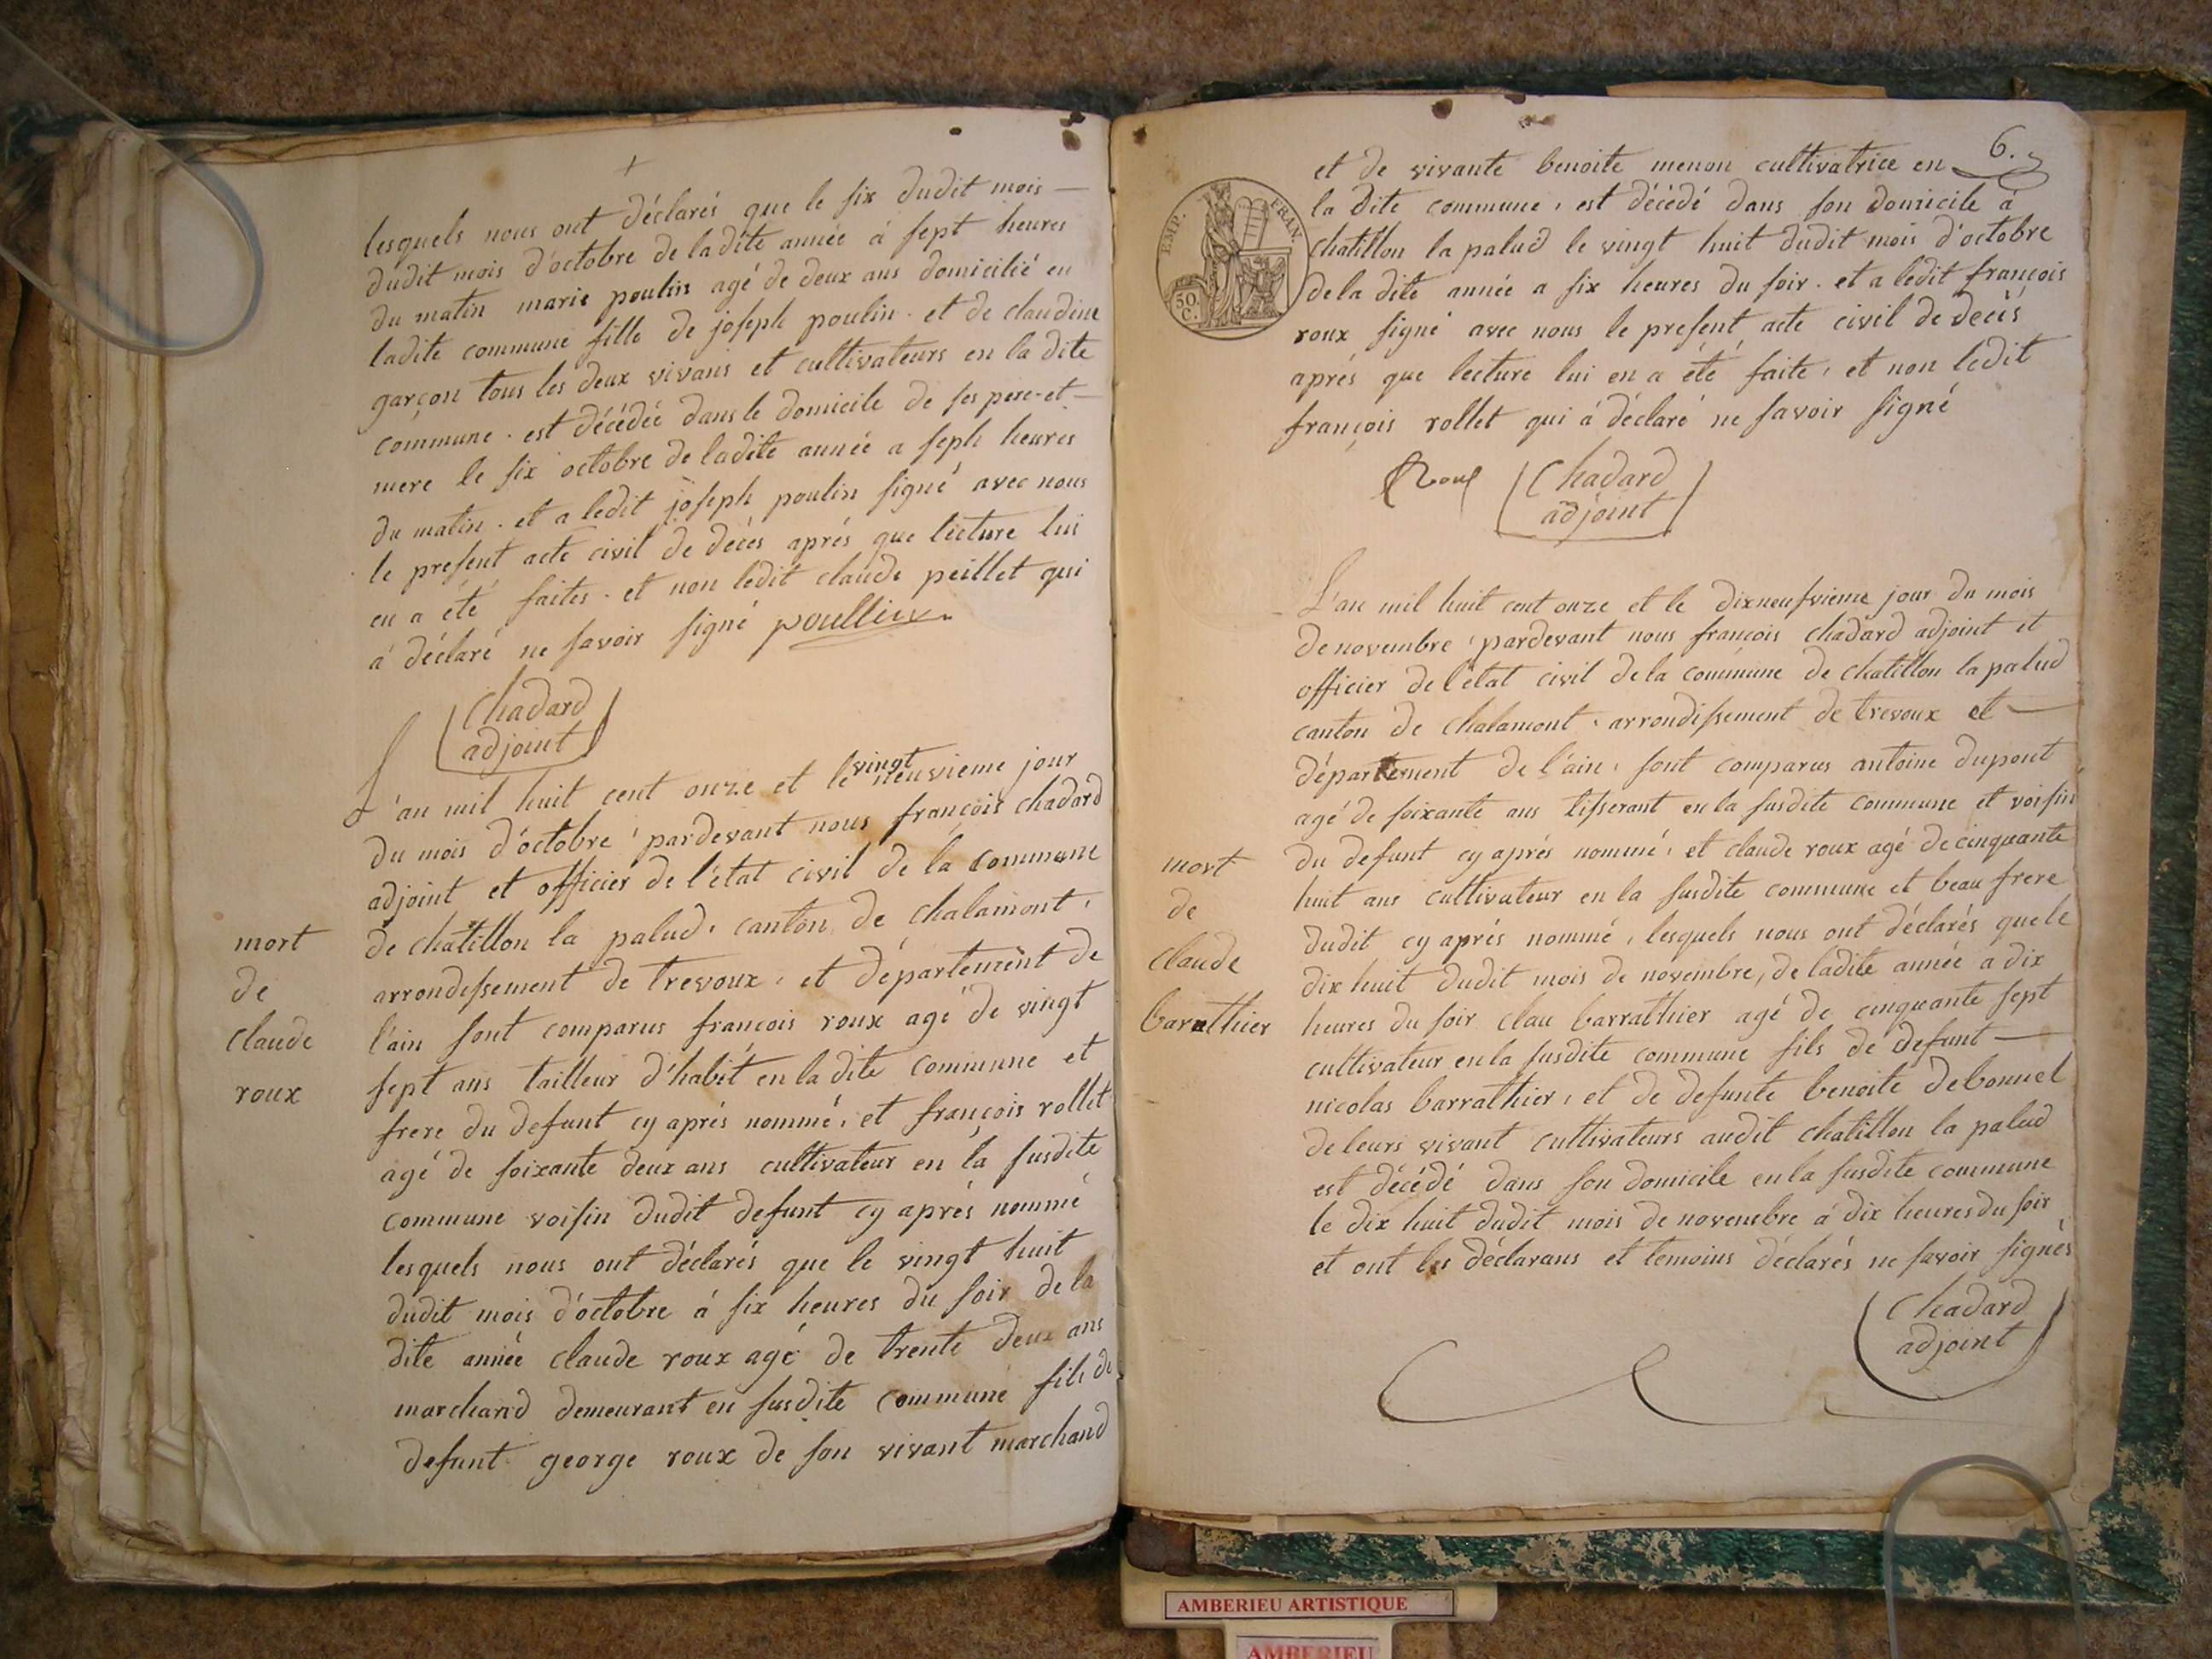 lesquels nous ont déclarés que le six dudit mois —
dudit mois d'octobre de ladite année à sept heures
du matin marie poulin agé de deux ans domicilié en
ladite commune fille de joseph poulin. et de claudine
garçon tous les deux vivans et cultivateurs en la dite
commune. est décédée dans le domicile de ses pere-et-
mere le six octobre de ladite année a seph heures
du matin. et a ledit joseph poulin signé avec nous
le present acte civil de décés aprés que lecture lui
en a été faites. et non ledit claude peillet qui
a déclaré ne savoir signé poullin
Chadard
adjoint
L'an mil huit cent onze et le vingt neuvieme jour
du mois d'octobre pardevant nous françois chadard
adjoint et officier de l'état civil de la commune
de chatillon la palud, canton de chalamont,
mort
de
claude
roux
arrondissement de trevoux, et département de
l'ain sont comparus francois roux agé de vingt
sept ans tailleur d'habit en la dite commune et
frere du defunt cy aprés nommé, et françois rollet
agé de soixante deux ans cultivateur en la susdite
commune voisin dudit defunt cy aprés nommé
lesquels nous ont déclarés que le vingt huit
dudit mois d'octobre á six heures du soir de la
dite année claude roux agé de trente deux ans
marchand demeurant en susdite commune fils de
defunt george roux de son vivant marchand
6.
et de vivante benoite menon cultivatrice en
la dite commune, est décédé dans son domicile à
chatillon la palud le vingt huit dudit mois d'octobre
de la dite année a six heures du soir. et a ledit françois
roux signé avec nous le present acte civil de décés
aprés que lecture lui en a été faite, et non ledit
françois rollet qui á déclaré ne savoir signé
EMP. FRAN.
50
C.
Roux
Chadard
adjoint
L'an mil huit cent onze et le dixneufvieme jour du mois
de novembre pardevant nous françois chadard adjoint et
officier de l'état civil de la commune de chatillon la palud
canton de chalamont, arrondissement de trevoux et —
département de l'ain, sont comparus antoine dupont
agé de soixante ans tisserant en la susdite commune et voisin
du defunt cy aprés nommé, et claude roux agé de cinquante
huit ans cultivateur en la susdite commune et beau frere
dudit cy aprés nommé, lesquels nous ont déclarés que le
dix huit dudit mois de novembre, de ladite année a dix
heures du soir clau barrathier agé de cinquante sept
cultivateur en la susdite commune fils de defunt —
nicolas barrathier, et de defunte benoite debonnel
de leurs vivant cultivateurs audit chatillon la palud
est décédé dans son domicile en la susdite commune
le dix huit dudit mois de novembre á dix heures du soir
et ont les déclarans et temoins déclarés ne savoir signés
mort
de
claude
barathier
Chadard
adjoint
AMBERIEU ARTISTIQUE
AMBERIEU